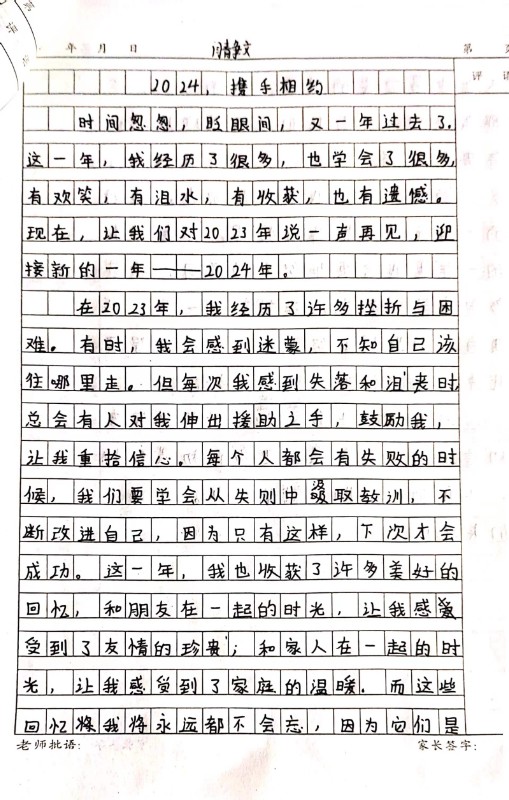 年 月 日
第 页
评 语
2024，携手相约
时间忽忽，眨眼间，又一年过去了.
这一年，我经历了很多，也学会了很多,
有欢笑，有泪水，有收获，也有遗憾。
现在，让我们对2023年说一声再见，迎
接新的一年——2024年。
在2023年，我经历了许多挫折与困
难。有时，我会感到迷蒙，不知自己该
往哪里走。但每次我感到失落和沮丧时
总会有人对我伸出援助之手，鼓励我，
让我重拾信心。每个人都会有失败的时
候，我们要学会从失则中汲取教训，不
断改进自己，因为只有这样，下次才会
成功。这一年，我也收获了许多美好的
回忆，和朋友在一起的时光，让我感
受到了友情的珍贵；和家人在一起的时
光，让我感受到了家庭的温暖．而这些
回忆将我将永远都不会忘，因为它们是
老师批语:
家长签字: